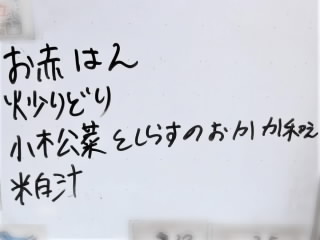 お赤はん
炒りどり
小松菜としらすのおかか和え
粕汁